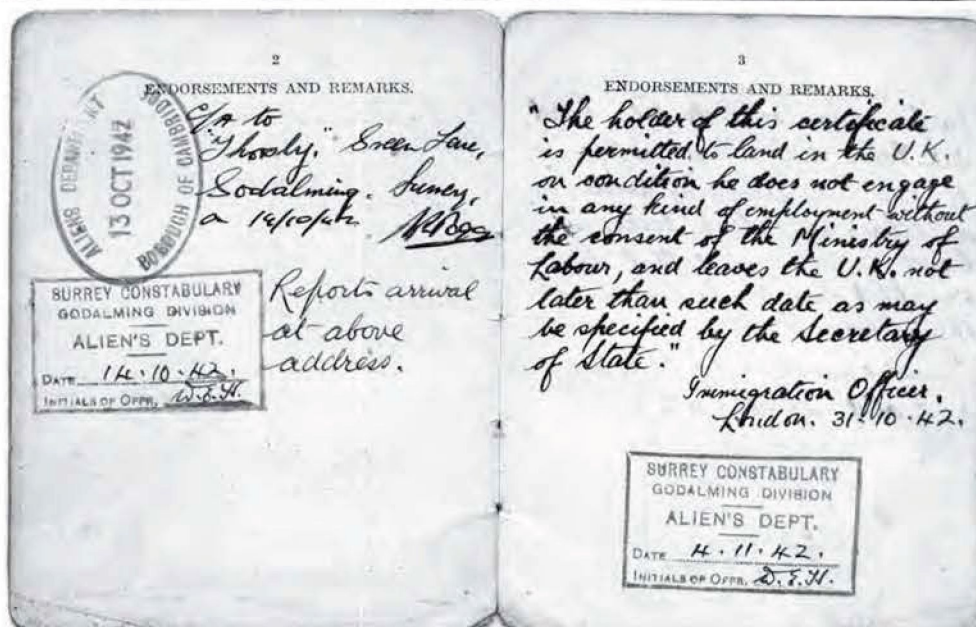 2
ENDORSEMENTS AND REMARKS.
ALIENS DEPARTMENT
13 OCT 1942
BOROUGH OF CAMBRIDGE
C/A to
Green Lane,
Godalming. Surrey,
on 14/10/42
SURREY CONSTABULARY
GODALMING DIVISION
ALIEN'S DEPT.
DATE 14.10.42.
INITIALS OF OFFR. D.E.H.
Reports arrival
at above
address.
3
ENDORSEMENTS AND REMARKS.
"The holder of this certificate
is permitted to land in the U.K.
on condition he does not engage
in any kind of employment without
the consent of the Ministry of
Labour, and leaves the U.K. not
later than such date as may
be specified by the Secretary
of State."
Immigration Officer.
London. 31.10.42.
SURREY CONSTABULARY
GODALMING DIVISION
ALIEN'S DEPT.
DATE 4.11.42.
INITIALS OF OFFR. D.E.H.